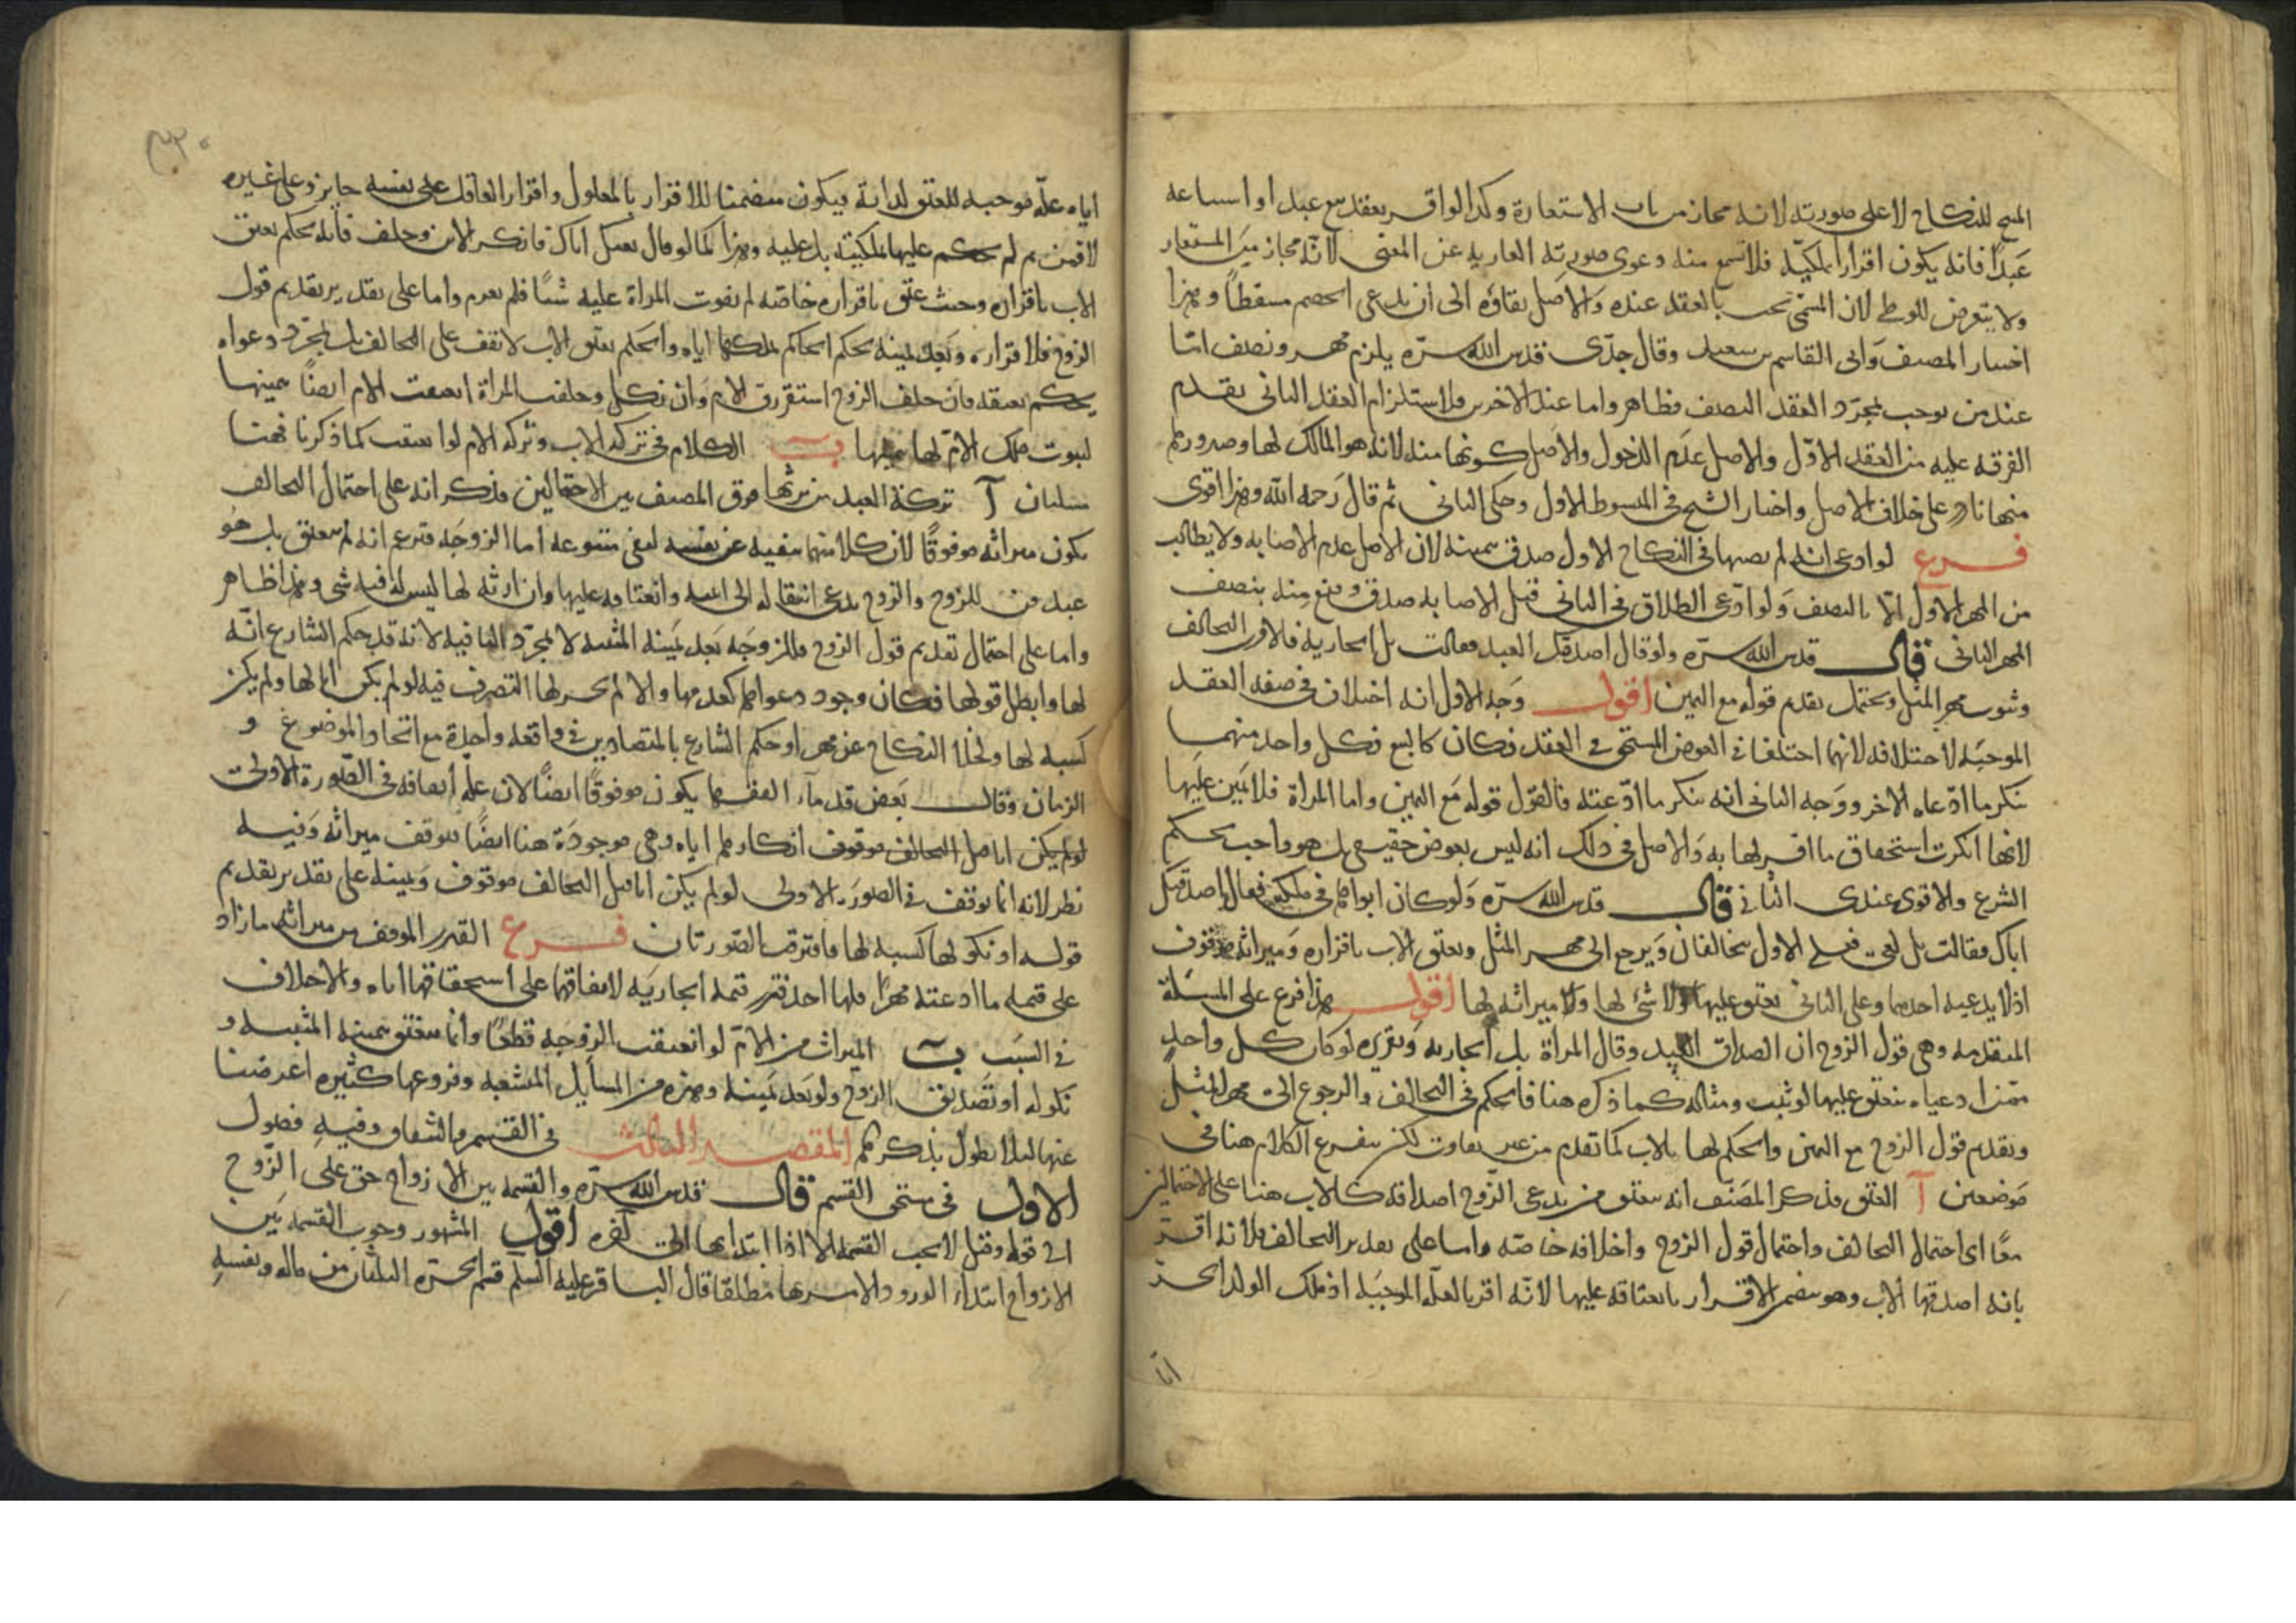 المبيح للنكاح لا على صورته لانه مجاز من باب الاستعارة وكذا لو اقر بعقد بيع عبد او استباعه
عبدا فانه يكون اقرارا بالملكية فلا تسمع منه دعوى صورته العارية عن المعنى لانه مجاز
ولا يتعرض للوطي لان المسمى يجب بالعقد عنده والاصل بقاؤه الى ان يدعى الخصم مسقطا وهذا
اختيار المصنف وابى القاسم بن سعيد وقال جدى قدس الله سره يلزم مهر ونصف اما
عند من يوجب بمجرد العقد النصف فظاهر واما عند الاخرين فلاستلزام العقد الثانى تقدم
الفرقة عليه من العقد الاول والاصل عدم الدخول والاصل كونها منه لانه هو المالك لها وصدورها
منها نادر على خلاف الاصل واختار الشيخ فى المبسوط الاول وحكى الثانى ثم قال رحمه الله وهذا اقوى
فرع لو ادعى انه لم يصبها فى النكاح الاول صدق بيمينه لان الاصل عدم الاصابة ولا يطالب
من المهر الاول الا بالنصف ولو ادعى الطلاق فى الثانى قبل الاصابة صدق وقنع منه بنصف
المهر الثانى قال قدس الله سره ولو قال اصدقتك العبد فقالت بل الجارية فالاقرب التحالف
وثبوت مهر المثل ويحتمل تقديم قوله مع اليمين اقول وجه الاول انه اختلاف فى صفة العقد
الموجبة لاختلافه لانهما اختلفا فى العوض المستحق فى العقد فكان كالبيع فكل واحد منهما
ينكر ما ادعاه الاخر ووجه الثانى انه ينكر ما ادعته فالقول قوله مع اليمين واما المراة فلا يمين عليها
لانها انكرت استحقاق ما اقر لها به والاصل فى ذلك انه ليس بعوض حقيقى بل هو واجب بحكم
الشرع والاقوى عندى الثانى قال قدس الله سره ولو كان ابواها فى ملكه فقال اصدقتك
اباك فقالت بل امى فعلى الاول يتحالفان ويرجع الى مهر المثل ويعتق الاب باقراره وميراثه موقوف
اذ لا يدعيه احدهما وعلى الثانى يعتق عليها ولا شئ لها ولا ميراثه لها اقول هذا فرع على المسئلة
المتقدمة وهى قول الزوج ان الصداق العبد وقال المراة بل الجارية وتقريره لو كان كل واحد
ممن ادعياه ينعتق عليها لو ثبت ومثاله كما ذكره هنا فالحكم فى التحالف والرجوع الى مهر المثل
وتقديم قول الزوج مع اليمين والحكم لها بالاب كما تقدم من غير تفاوت لكن يتفرع الكلام هنا فى
موضعين آ العتق فذكر المصنف انه يعتق من يدعى الزوج اصداقه كالاب هنا على الاحتمالين
معا اى احتمال التحالف واحتمال قول الزوج واخلافه خاصة واما على تقدير التحالف فلانه اقر
بانه اصدقها الاب وهو يتضمن الاقرار بانعتاقه عليها لانه اقر بالعلة الموجبة اذ ملك الولد الحر
اياه علة موجبة للعتق لذاته فيكون متضمنا للاقرار بالمعلول واقرار العاقل على نفسه جايز وعلى غيره
لا فمن ثم لم يحكم عليها بالملكية بل عليه وهذا كما لو قال بعتك اباك فانكر الابن وحلف فانه يحكم بعتق
الاب باقراره وحيث عتق باقراره خاصة لم يفوت المراة عليه شيئا فلم يغرم واما على تقدير تقديم قول
الزوج فلاقراره وبعد يمينه يحكم الحاكم بملكها اياه والحكم بعتق الاب لا يقف على التحالف بل بمجرد دعواه
يحكم بعتقه فان حلف الزوج استقر رق الام وان نكل وحلفت المراة انعتقت الام ايضا بيمينها
لثبوت ملك الام لها بيمينها ب الكلام فى تركة الاب وتركة الام لو انعتقت كما ذكرنا فهنا
مسئلتان آ تركة العبد من يرثها فرق المصنف بين الاحتمالين فذكر انه على احتمال التحالف
يكون ميراثه موقوفا لان كلا منهما ينفيه عن نفسه لنفى متبوعه اما الزوجة فتزعم انه لم يعتق بل هو
عبد قن للزوج والزوج يدعى انتقاله الى ابنته وانعتاقه عليها وان ارثه لها ليس له فيه شئ وهذا ظاهر
واما على احتمال تقديم قول الزوج فللزوجة بعد يمينه المثبته لا لمجرد النافية لانه قد حكم الشارع انه
لها وابطل قولها فكان وجود دعواها كعدمها والا لم يجز لها التصرف فيه لو لم يكن ابا لها ولم يكن
كسبه لها ولخلا النكاح عن مهر او حكم الشارع بالمتضادين فى واقعة واحدة مع اتحاد الموضوع و
الزمان وقال بعض قدماء الفقهاء يكون موقوفا ايضا لان علة ايقافه فى الصورة الاولى
لو لم يكن ابا صل التحالف موقوف انكارهما اياه وهى موجودة هنا ايضا فتوقف ميراثه وفيه
نظر لانه انما توقف فى الصورة الاولى لو لم يكن ابا صل التحالف موقوف وبينه على تقدير تقديم
قوله او نكولها كسبه لها فافترقت الصورتان فرع القدر الموقف من ميراثه ما زاد
على قيمة ما ادعته مهرا فلها اخذ قدر قيمة الجارية لاتفاقهما على استحقاقها اياه والاختلاف
فى السبب ب الميراث من الام لو انعتقت الزوجة قطعا وانما ينعتق بيمينها المثبتة و
نكوله او تصديق الزوج ولو بعد يمينه وهذه من المسايل المتشعبة وفروعها كثيرة اعرضنا
عنها لئلا نطول بذكرها المقصد الثالث فى القسم والشقاق وفيه فصول
الاول فى مستحق القسم قال قدس الله سره والقسمة بين الازواج حق على الزوج
الى قوله وقيل لا تجب القسمة الا اذا ابتدا بها الى آخره اقول المشهور وجوب القسمة بين
الازواج ابتداء لورود الامر بها مطلقا قال الباقر عليه السلم قسم الحرة الثلثان من ماله ونفسه